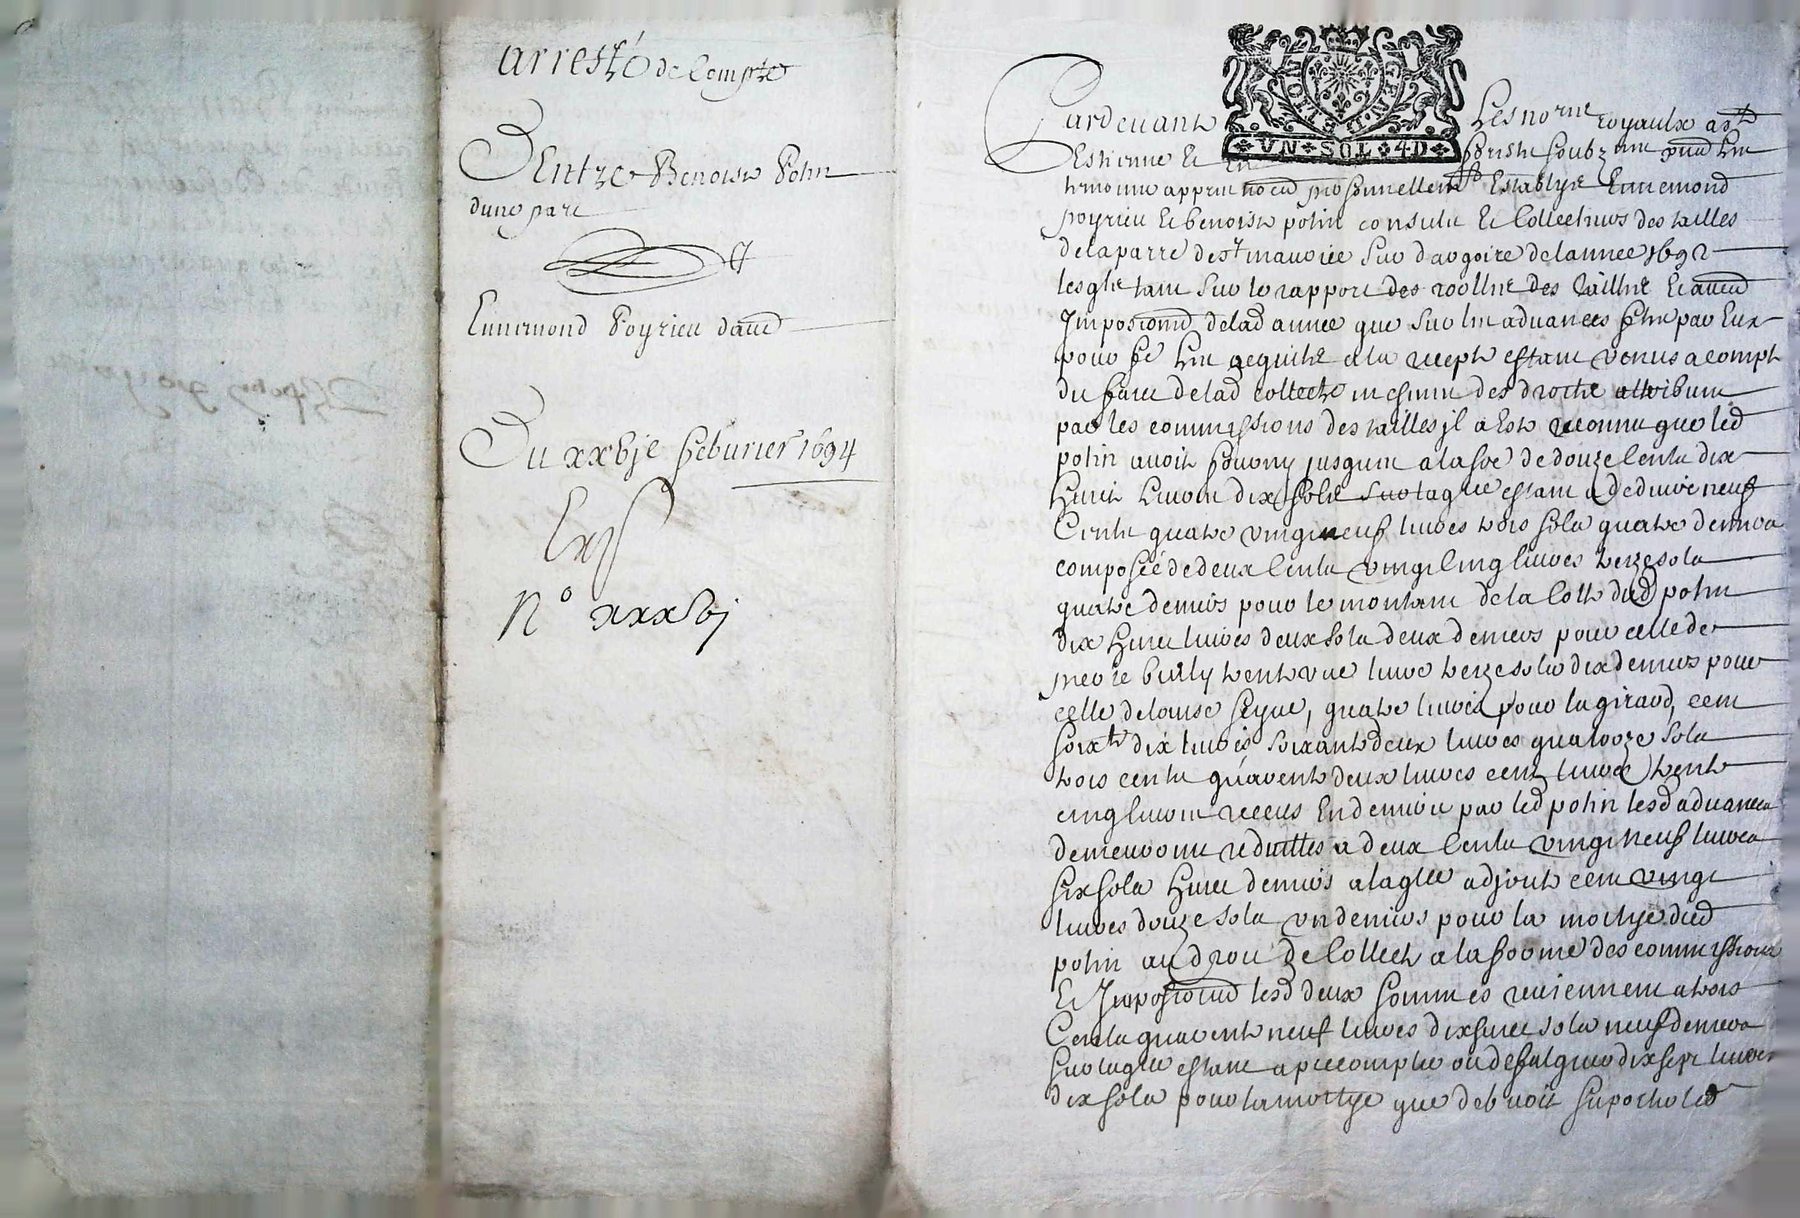 arresté de Compte
Dentre Benoist Potin
dune part
Et
Ennemond Poyrieu daud
Du xxvje feburier 1694
N° xxxvj
GEN·DE·LION
UN SOL 4D
Pardevant Les no.res royaulx a St
Estienne Et soubz.nes
personnellem.t Establys Ennemond
poyrieu Et benoist potin consulz Et Collecteurs des tailles
de la parre de St maurice sur dargoire de lannee 1692
lesqls sur le rapport des roolles des tailles Et aued
Imposiond de lad annee que sur les aduances fetes par Eux
pour se acquits de la recepte estans venus a compte
du faict de lad collecte des droits attribuees
par les commissions des tailles il a Este reconnu que led
potin avoit fourny jusques a la soe de douze Cents dix
Huict Livres dix sols sur laqlle estant a deduire neuf
Cents quatre vingt neuf livres trois sols quatre deniers
composée de deux Cents vingt Cinq livres treize sols
quatre deniers pour le montant de la Cotte dud potin
dix Huict livres deux sols deux deniers pour celle de
trente une livre treize sols dix deniers pour
celle de louise seyve, quatre livres pour la giraud, cent
soix.te dix livres soixante deux livres quatorze sols
trois cents quarente deux livres cent livres trente
cinq livres receus En deniers par led potin lesd aduances
demeurent reduittes a deux Cents vingt neuf livres
six sols Huict deniers a laqlle adjouté cent vingt
livres douze sols un deniers pour la moitye dud
potin au droit de Collecte a la soome des commissions
Et Imposiond lesd deux sommes reviennent a trois
Cents quarente neuf livres dix huict sols neuf deniers
sur laqlle estant a precompter ou desfalquer dix sept livres
dix sols pour la moitye que debvoit suporter led